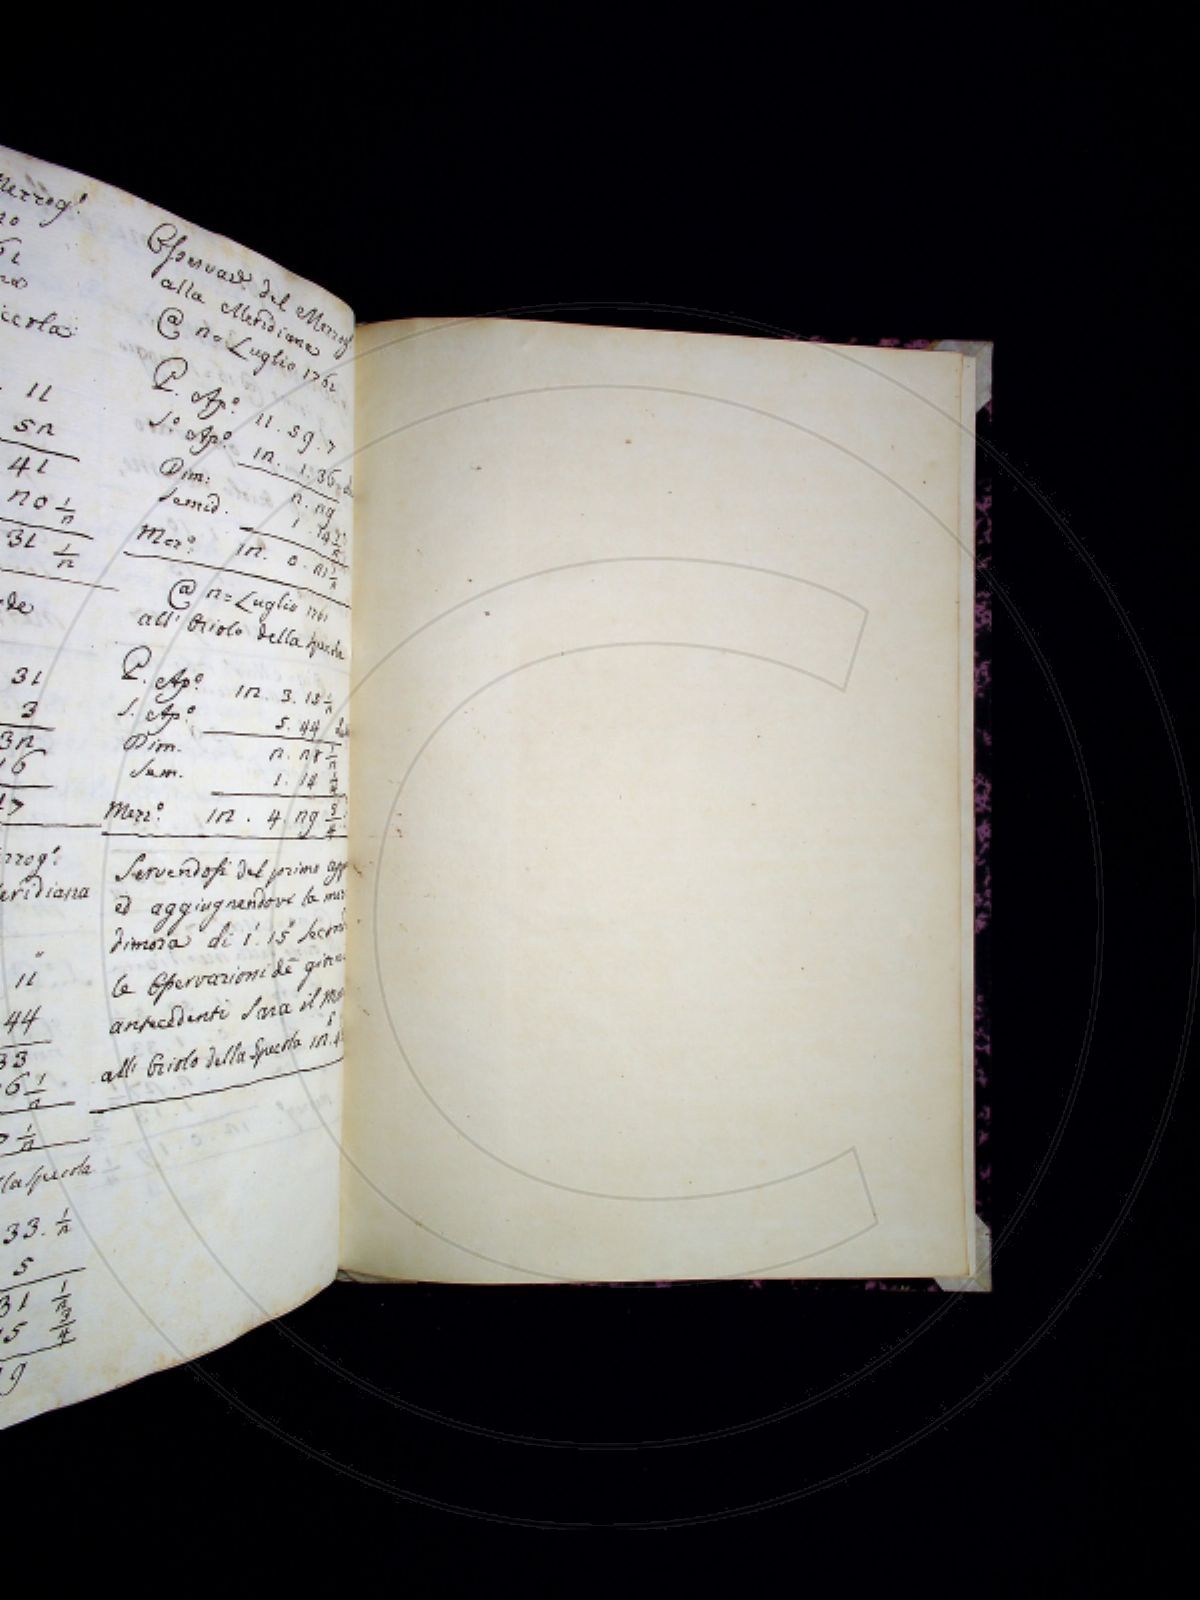 Merrog.ⁱ
no
61
iccola
11
5n
41
n0 1/n
31 1/n
ede
31
3
3n
16
17
rrog.ⁱ
eridiana
11
44
33
6 1/n
7 1/n
lla Specola
33. 1/n
5
31 1/n
15 3/4
19
Osservaz. del Merrog
alla Meridiana
@ n= Luglio 1761
P. Ap.º 11. 59. 7
S.º Ap.º 1n. 1. 36
Dim: n. ng
Semid. 1. 14
Mer.º 1n. 0. n1
@ n= Luglio 1761
all' Oriolo della specola
P. Ap.º 1n. 3. 15 1/n
S. Ap.º 5. 44
Dim. n. n8 1/n
Sem. 1. 14
Merr.º 1n. 4. ng 3/4
Servendosi del primo app
ed aggiugnendovi la
dimora di 1'. 15" secon
le Osservazioni de
antecedenti Sara il
all' Oriolo della Specola 1n. 4